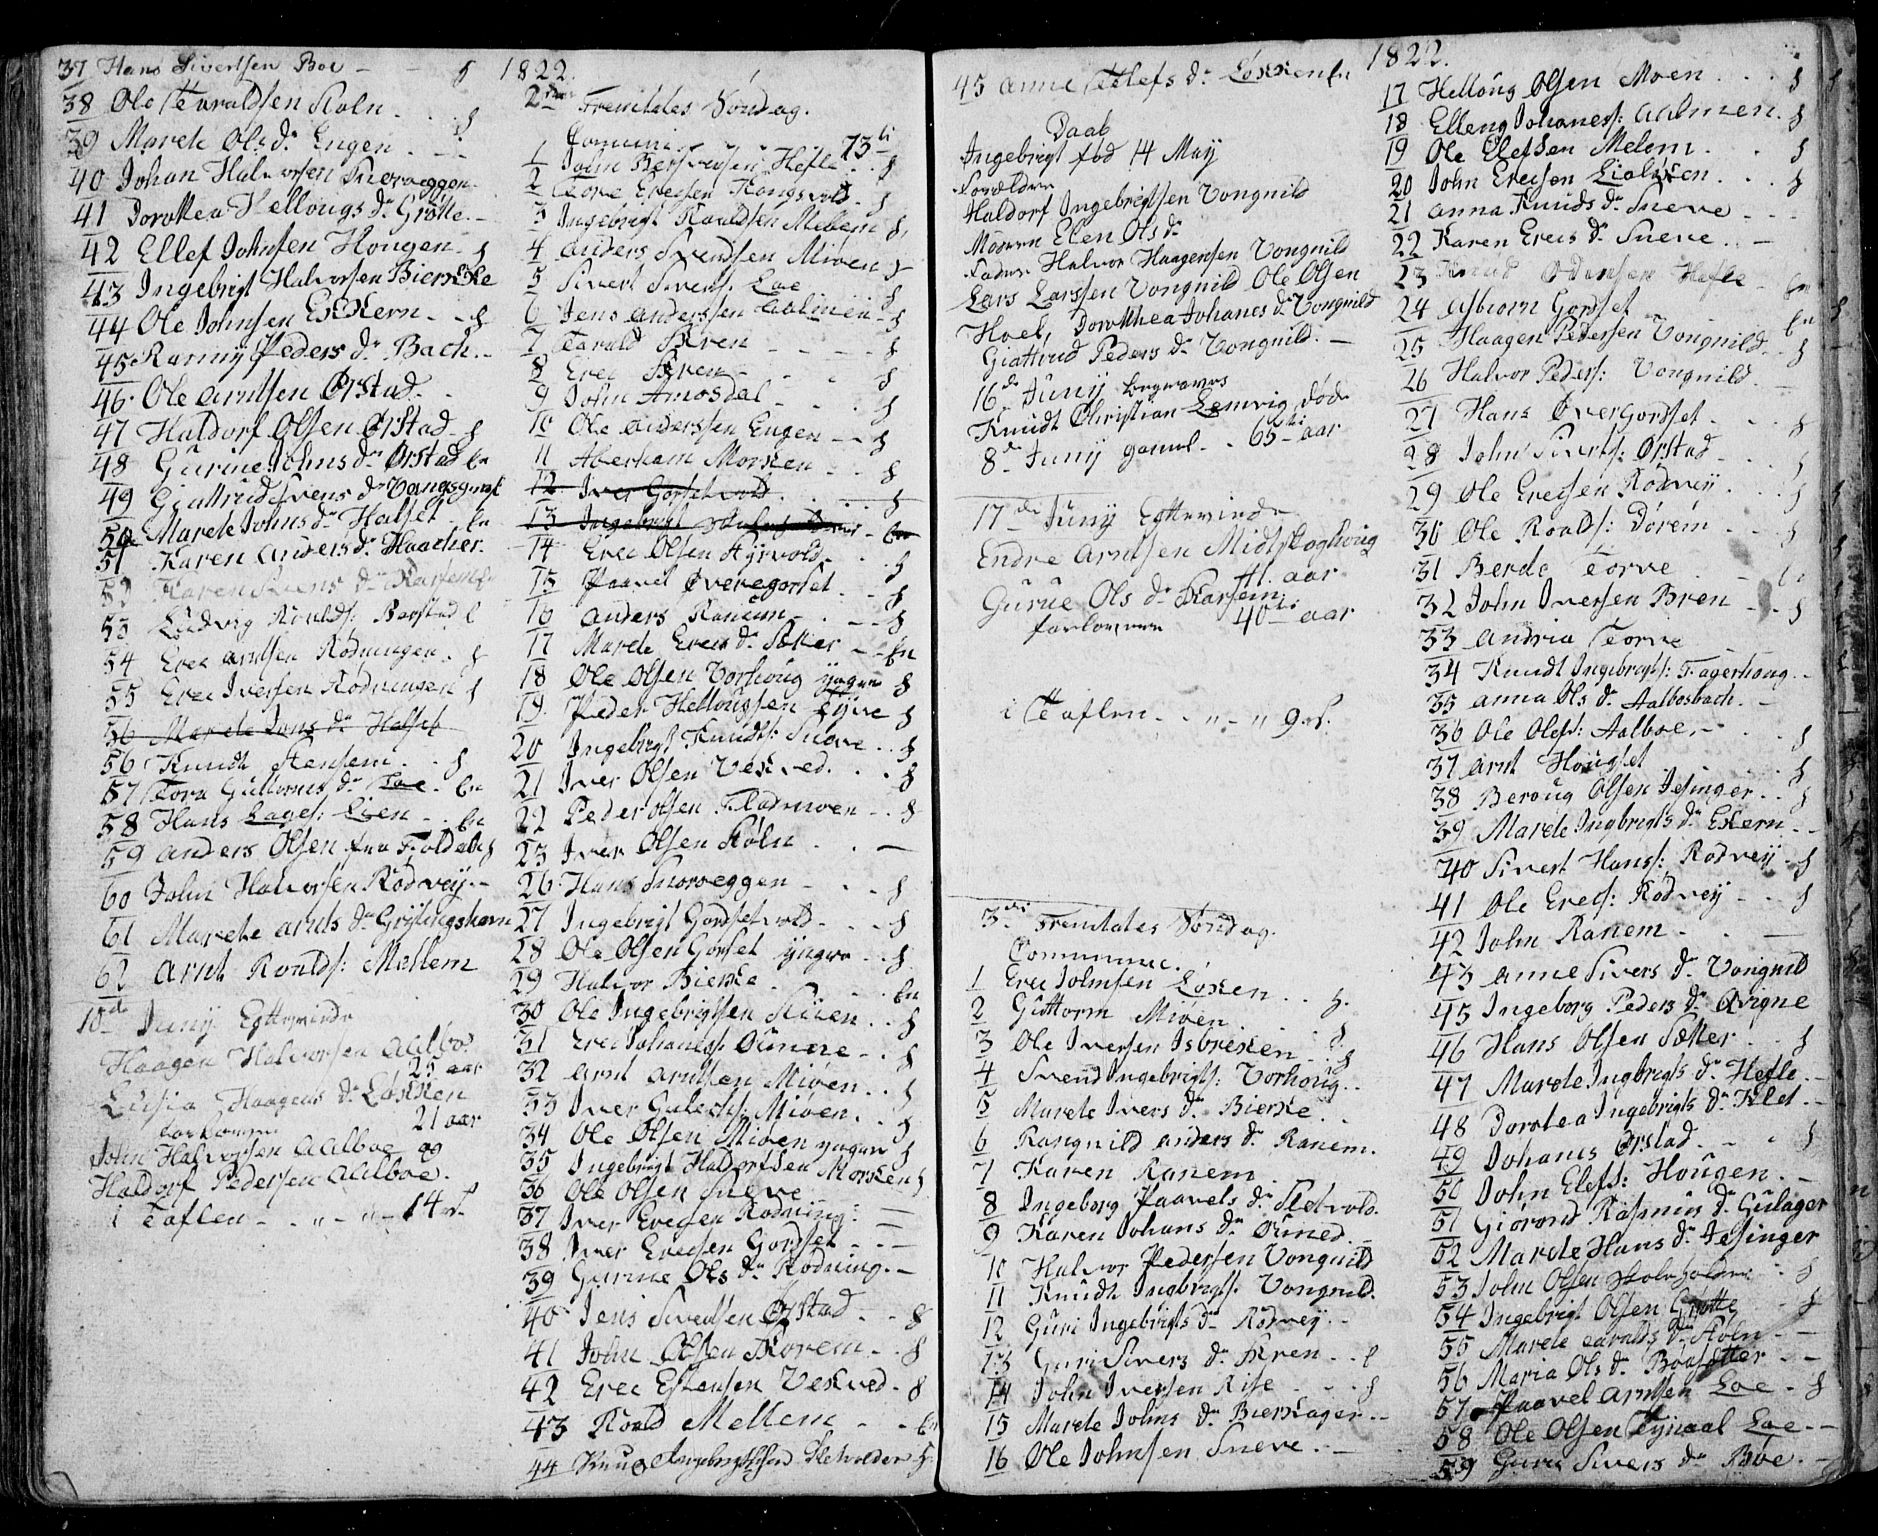 37 Hans Sivertsen Boe - - §
38 Ole Taraldsen Köln . . . §
39 Marete Ols d. Engen . - -
40 Johan Halvorsen Snoroeggen
41 Dorothea Hellougs d. Grötte. -
42 Ellef Johnsen Hougen - §
43 Ingebrigt Halvorsen Bierske
44 Ole Johnsen Exkern - - §
45 Ranny Peders d. Bach. -
46 Ole Arntsen Ørstad. -
47 Haldorf Olsen Ørstad - §
48 Gurine Johns d. Ørstad
49 Giattrud Svens d. Vangsgrut
50 Marete Johns d. Halset
51 Karen Anders d. Haacher.
52 Karen Svens d.
53 Ludvig Roalds:
54 Erec Arntsen Rödningen. §
55 Erec Iversen Rodningen §
56 Marete Jons d. Halset
56 Knudt Stensem. . §
57 Tora Guttorms d. Loe.
58 Hans Lages: Lien . .
59 Anders Olsen fra Foldahl §
60 John Halvorsen Rödvey. -
61 Marete Arnts d. Grytingshom
62 Arnt Roalds: Mellem
10de Juny Egtevinde
Haagen Halvorsen Aalbo
25 aar
Lusia Haagens d. Løkken
21 aar
forlovere
John Halvorsen Aalboe og
Haldorf Pedersen Aalboe.
i Taflen - . „ - „ - 14 s.
1822.
2den Trenitates Söndag.
Comuni. . . . . 73ti
1 John Bersvensen Hefle . . §
2 Tore Erecsen Kongsvold - §
3 Ingebrigt Roaldsen Mellem §
4 Anders Svendsen Miöen §
5 Sivert Sivers: Loe . . §
6 Jens Anderssen Aalmen - §
7 Tarald Bren - - - - §
8 Erec Bren - - - §
9 John Amosdal - . . §
10 Ole Anderssen Engen - - §
11 Aberham Morken - . . §
12 Iver Gorsetvold . . - §
13 Ingebrigt
14 Erec Olsen Hyrvold - . . §
15 Paavel Øvregorset . - §
16 Anders Ranem - . - - §
17 Marete Erecs d. Sæter - -
18 Ole Olsen Vorhoug yngre §
19 Peder Hellougsen §
20 Ingebrigt Knudts: Sneve . . §
21 Iver Olsen Vekved. . . §
22 Peder Olsen Flodmoen - . §
23 Iver Olsen Köln . . -
26 Hans Snoroeggen - . . §
27 Ingebrigt Gordsetvold - . - §
28 Ole Olsen Gorset yngre . . §
29 Halvor Bierske .
30 Ole Ingebrigtsen Stuen . . §
31 Erec Johaness: Ounne - . §
32 Arnt Arntsen Miöen . . §
33 Iver Gulachs: Miöen . . §
34 Ole Olsen Miöen yngre §
35 Ingebrigt Haldorfsen Morsken §
36 Ole Olsen Sneve
37 Iver Erecsen Rodning: -
38 Iver Erecsen Gordset - . -
39 Gurine Ols d. Rodning. -
40 Jens Svendsen Ørstad - . §
41 John Olsen Dorem - . §
42 Erec Estensen Vekved - §
43 Roald Mellem - -
44 Knud Ingebrigtsen
45 Anne Ellefs d. Løkken
Daab
Ingebrigt fød 14 May
Forældre
Haldorf Ingebrigtsen Vongnild
Moeren Elen Ols d.
Fader Halvor Haagensen Vongnild
Lars Larssen Vongnild Ole Olsen
Hoel, Dorothea Johanes d. Vongnild
Giattrud Peders d. Vongnild. -
16de Juny begraves
Knudt Christian Lemvig død
8de Juny gaml. . 65ti aar
17de Juny Egtevinde
Endre Arntsen Midtskoghoug
41. aar
Gurue Ols d. Storsem
forlovere 40ti aar
i Taflen - . „ - „ 9 s.
3die Trenitates Söndag.
Communic.
1 Erec Johnsen Løken . . §.
2 Guttorm Miöen . . . §
3 Ole Iversen Isbrecken - . §
4 Svend Ingebrigts: Vorhoug . .
5 Marete Ivers d. Bierske . -
6 Rangnild Anders d. Ranem.
7 Karen Ranem
8 Ingeborg Paavels d. Sletvold.
9 Karen Johans d. Ouned. -
10 Halvor Pedersen Vongnild
11 Knudt Ingbrigts: Vongnild.
12 Guri Ingebrigts d. Rödvey. -
13 Guri Sivers d. Bren - . §
14 John Iversen Rise - . . §
15 Marete Johns d. Bierskager. -
16 Ole Johnsen Sneve. -
1822.
17 Helloug Olsen Moen . . . §
18 Elleng Johaness: Aalmen. . §
19 Ole Elefsen Melem . . §
20 John Erecsen Lioløken . . . §
21 Anna Knuds d. Sneve - - -
22 Karen Erecs d. Sneve. . -
23 Knud Odensen Hefle -
24 Asbiorn Gorset
25 Haagen Pedersen Vongnild . §
26 Halvor Peders: Vongnild. -
27 Hans Øvergordset. . . §
28 John Siverts: Ørstad - . . §
29 Ole Erecsen Rødvey . . §
30 Ole Roalds: Dörem - . . §
31 Berde Torve - -
32 John Iversen Bren - . §
33 Andria Torve
34 Knudt Ingebrigts: Fagerhoug . -
35 Anna Ols d. Aalbosbach . -
36 Ole Olefs: Aalboe, - . . §
37 Arnt Hougset . . . §
38 Beroug Olsen Jesinger . . §
39 Marete Ingbrigts d. Exern. -
40 Sivert Hans: Rodvey . §
41 Ole Erecs: Rödvey . . §
42 John Ranem . - -
43 Anne Sivers d. Vongnild
45 Ingeborg Peders d. Qvigne
46 Hans Olsen Sæter . . §
47 Marete Ingbrigts d. Hefle. -
48 Dorotea Ingebrigts d. Klet . -
49 Johanes Ørstad. - . §
50 John Elefs: Hougen . -
51 Giørond Rasmus d. Gulager
52 Marete Hans d. Jesinger
53 John Olsen Skoleholder . . §
54 Ingebrigt Olsen Grøtte - §
55 Marete Taralds d. Köln - -
56 Maria Ols d. Boesetter . -
57 Paavel Arntsen Loe . §
58 Ole Olsen Loe - -
59 Guru Sivers d. Böe . -